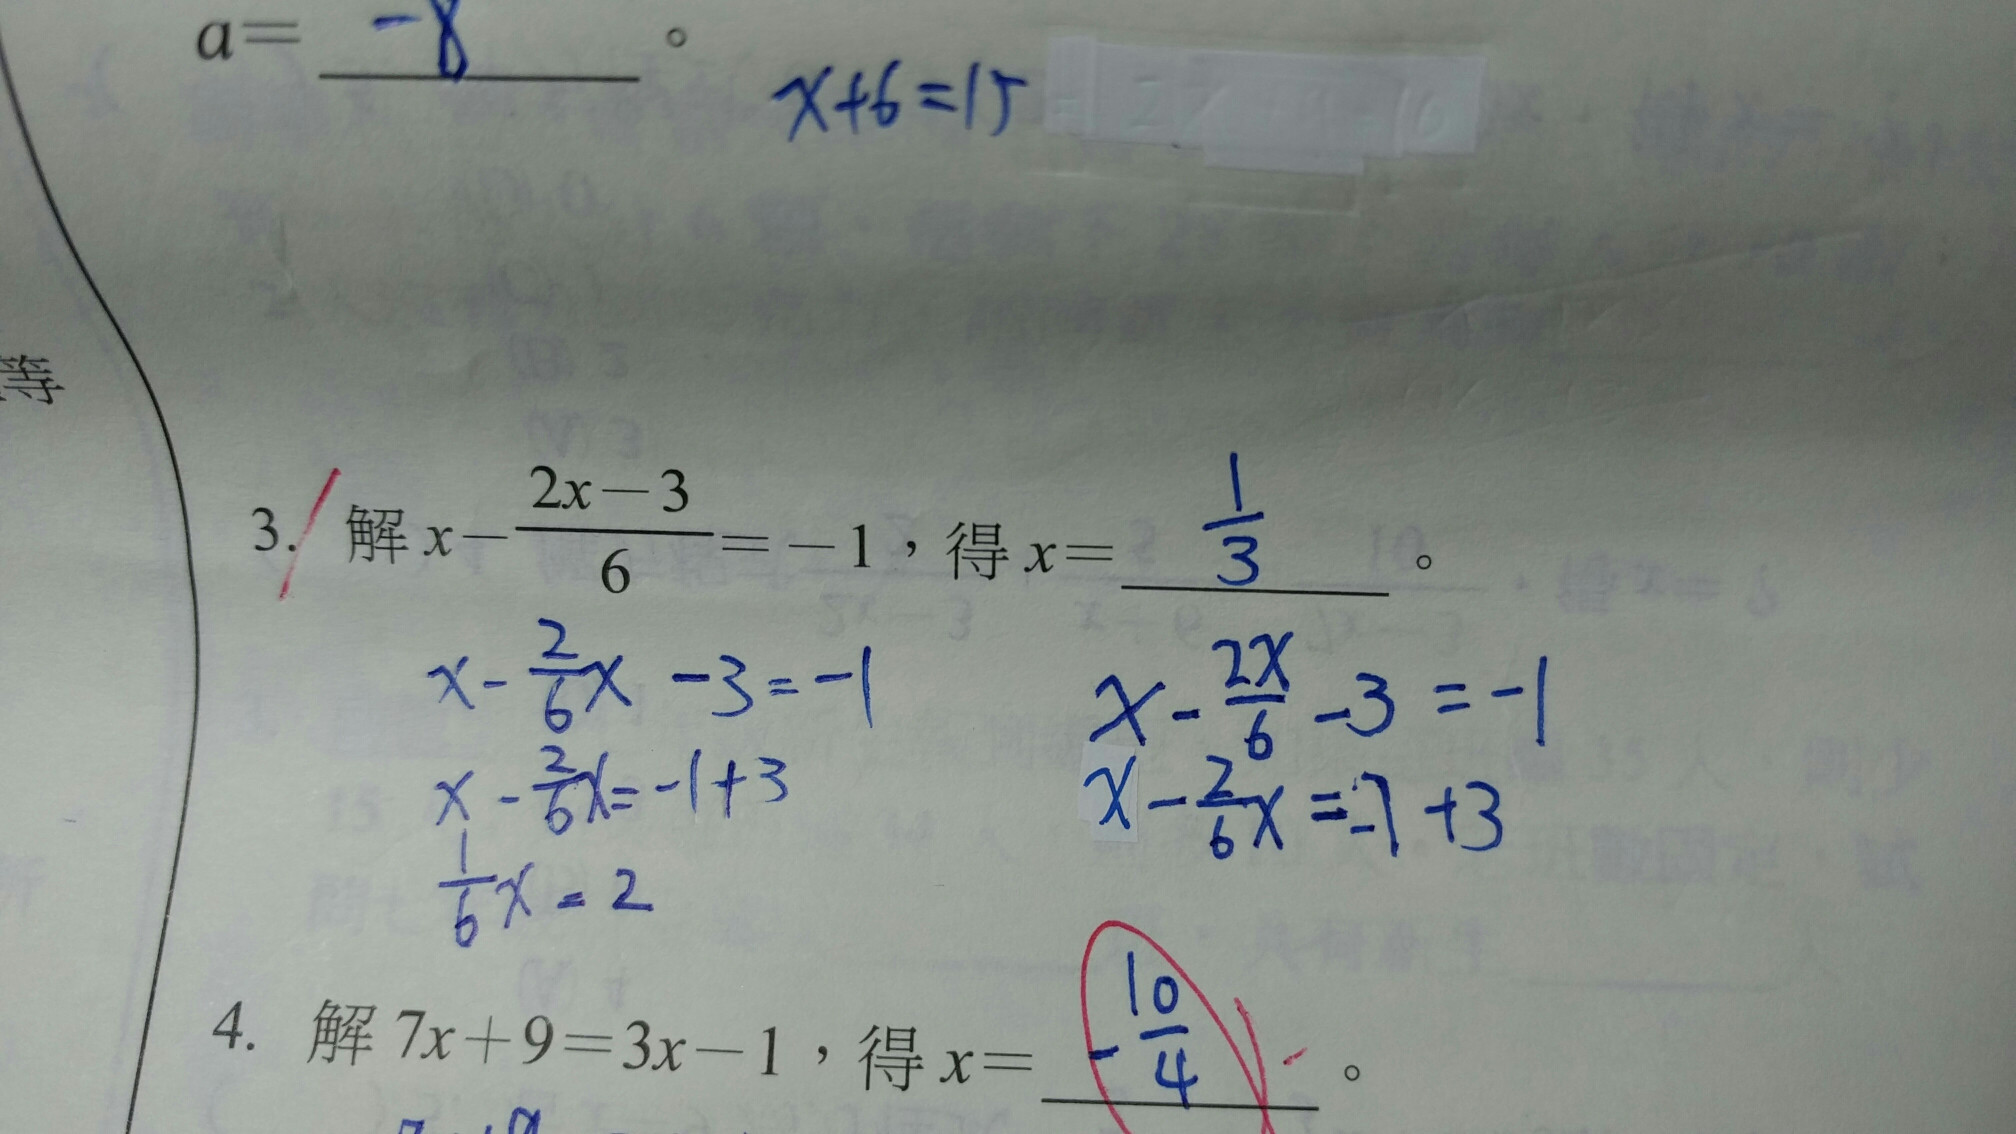 a= -8 。
x+6=15
等
3. 解 x- \frac{2x-3}{6} =-1,得 x= \frac{1}{3} 。
x- \frac{2}{6}x -3=-1
x- \frac{2}{6}x=-1+3
\frac{1}{6}x=2
x- \frac{2x}{6} -3=-1
x- \frac{2}{6}x=-1+3
4. 解 7x+9=3x-1,得 x= -\frac{10}{4} 。